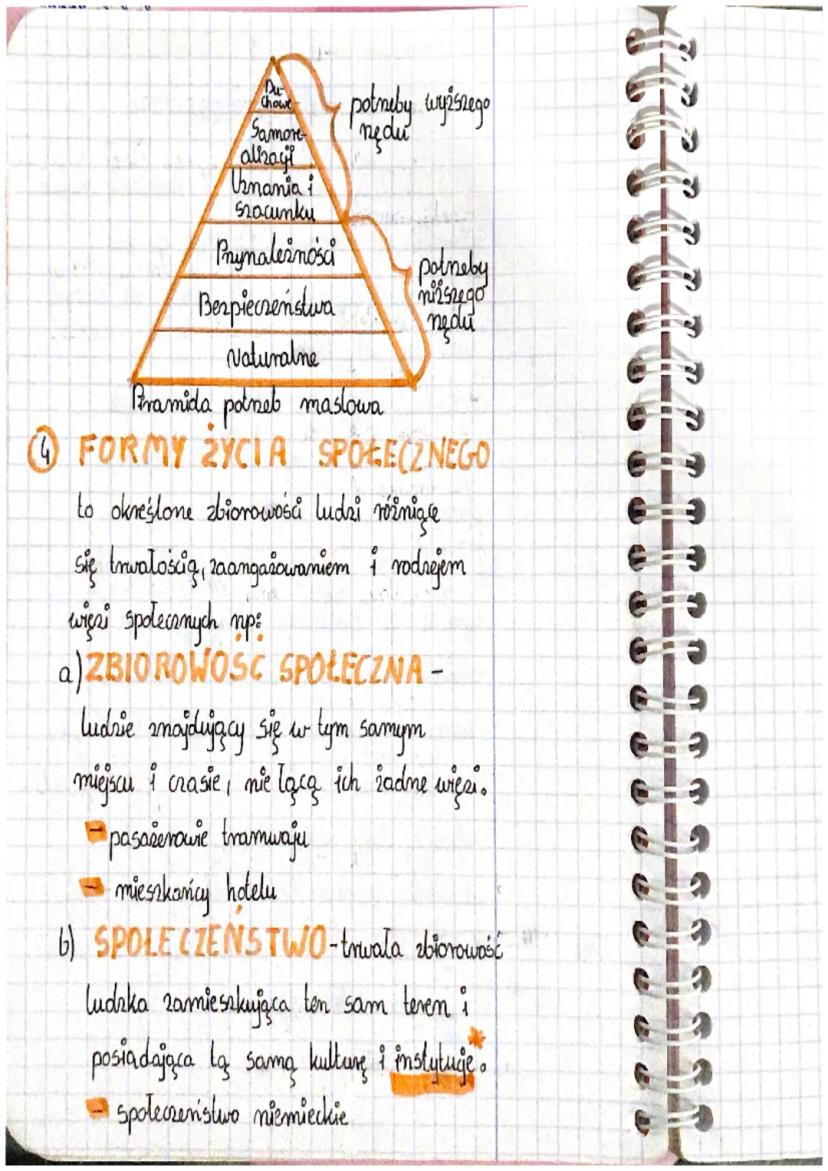 Du-
chowe
Samore-
alizacji
Uznania i
szacunku
Przynależności
Bezpieczeństwa
Naturalne
potrzeby wyższego
rzędu
potrzeby
niższego
rzędu
Piramida potrzeb masłowa
4 FORMY ŻYCIA SPOŁECZNEGO
to określone zbiorowości ludzi różniące
się trwałością, zaangażowaniem i rodzajem
więzi społecznych np:
a) ZBIOROWOŚĆ SPOŁECZNA -
ludzie znajdujący się w tym samym
miejscu i czasie, nie łączą ich żadne więzi.
- pasażerowie tramwaju
- mieszkańcy hotelu
b) SPOŁECZEŃSTWO - trwała zbiorowość
ludzka zamieszkująca ten sam teren i
posiadająca tą samą kulturę i instytucje*.
- społeczeństwo niemieckie